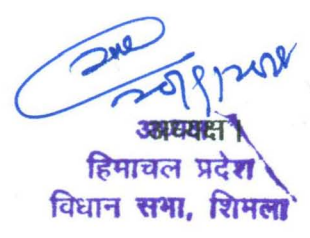 अध्यक्ष।
हिमाचल प्रदेश
विधान सभा, शिमला